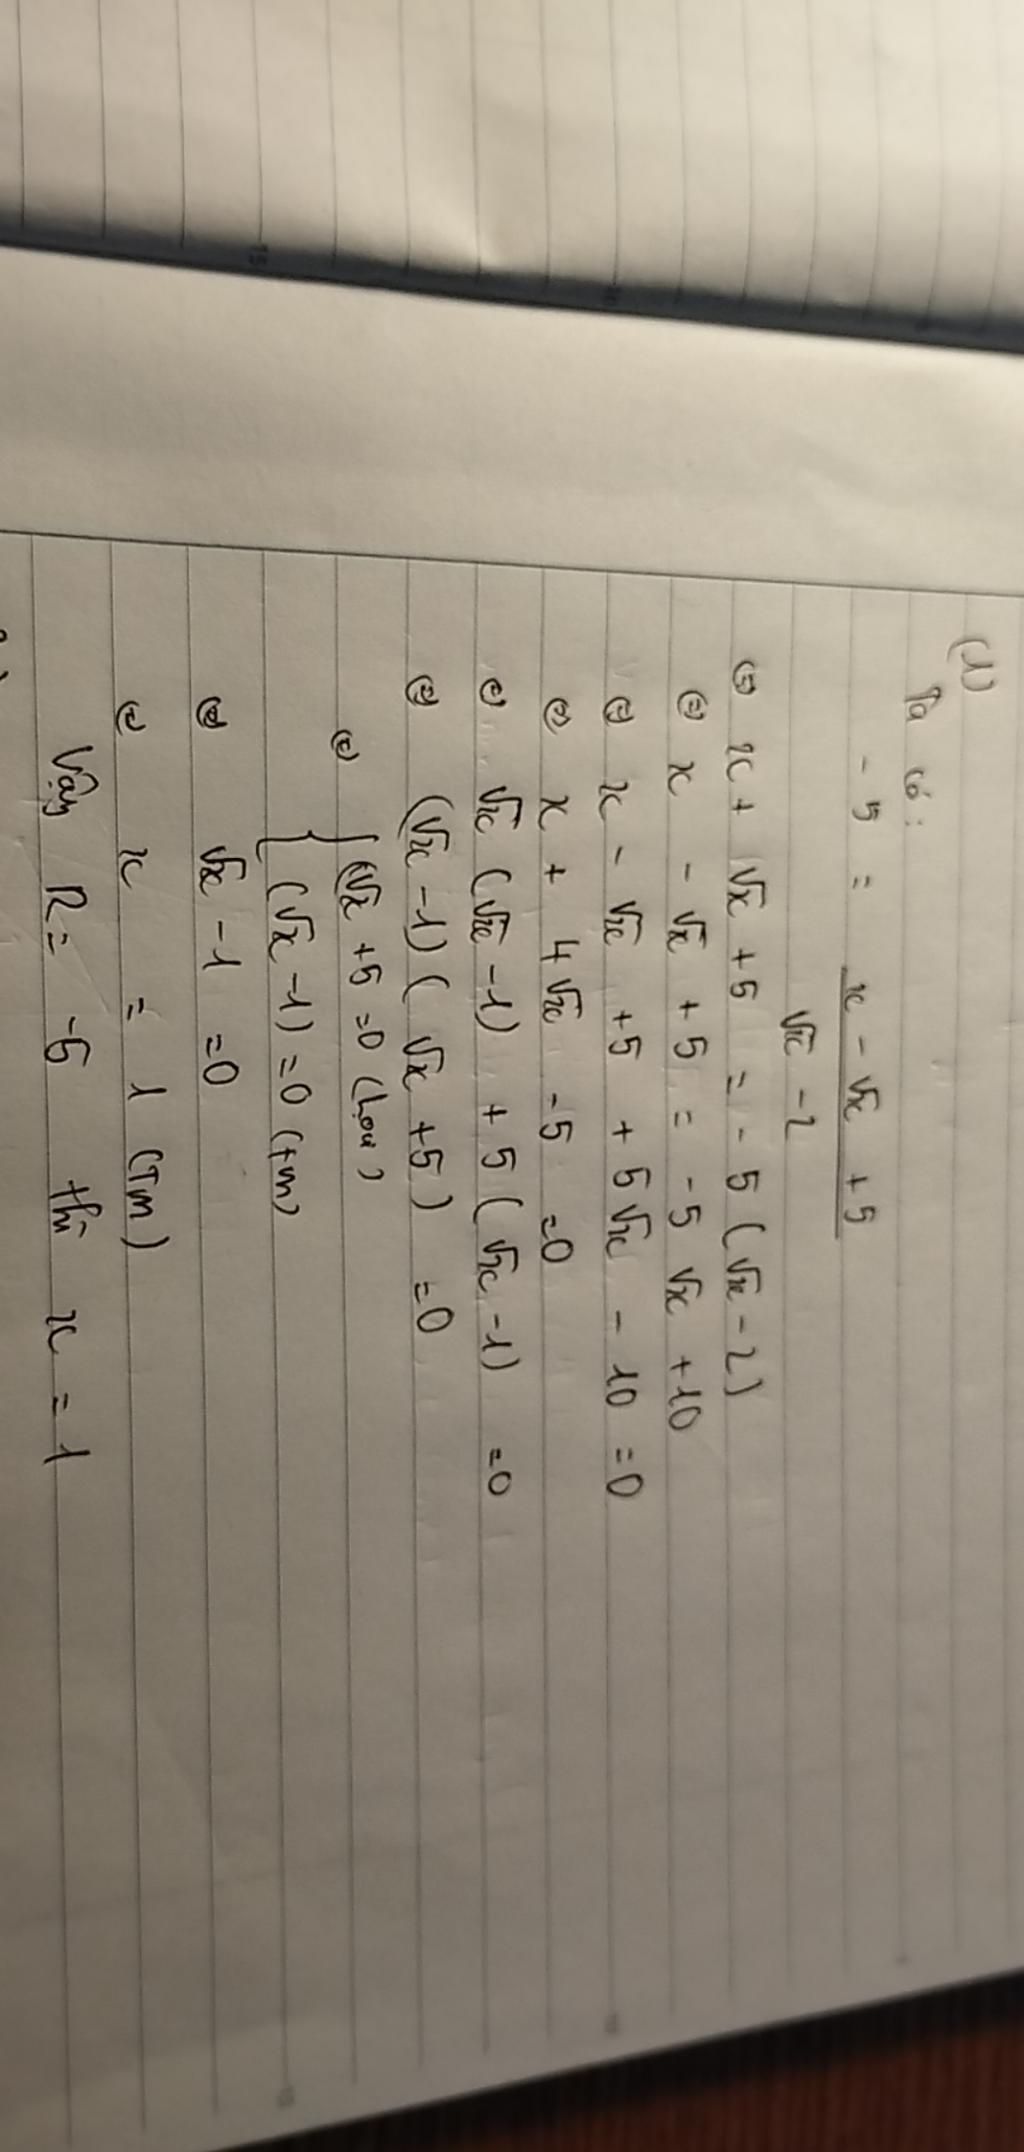 (1)
Ta có:
-5 = x - √x + 5 / √x - 2
⇔ x + √x + 5 = -5(√x - 2)
⇔ x - √x + 5 = -5√x + 10
⇔ x - √x + 5 + 5√x - 10 = 0
⇔ x + 4√x - 5 = 0
⇔ √x(√x - 1) + 5(√x - 1) = 0
⇔ (√x - 1)(√x + 5) = 0
⇔ { (√x + 5 = 0 (loại)
(√x - 1) = 0 (tm)
⇔ √x - 1 = 0
⇔ x = 1 (Tm)
Vậy R = -5 thì x = 1